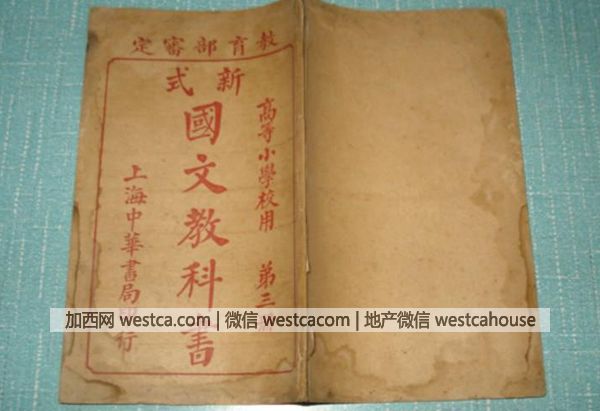 教育部審定
新式
國文教科書
高等小學校用 第三冊
上海中華書局發行
加西网 westca.com | 微信 westcacom | 地产微信 westcahouse